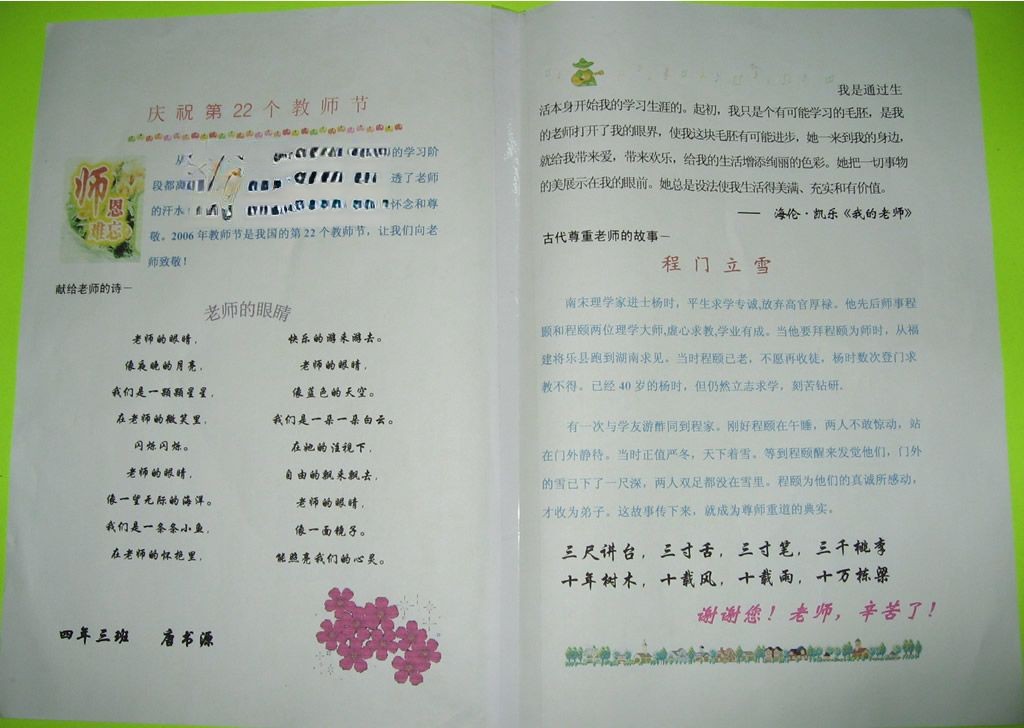 庆祝第22个教师节
从
的学习阶
段都离
透了老师
的汗水
怀念和尊
敬。2006年教师节是我国的第22个教师节，让我们向老
师致敬！
师恩难忘
献给老师的诗—
老师的眼睛
老师的眼睛，
像夜晚的月亮，
我们是一颗颗星星，
在老师的微笑里，
闪烁闪烁。
老师的眼睛，
像一望无际的海洋。
我们是一条条小鱼，
在老师的怀抱里，
快乐的游来游去。
老师的眼睛，
像蓝色的天空。
我们是一朵一朵白云。
在她的注视下，
自由的飘来飘去，
老师的眼睛，
像一面镜子。
能照亮我们的心灵。
四年三班 唐书源
我是通过生
活本身开始我的学习生涯的。起初，我只是个有可能学习的毛胚，是我
的老师打开了我的眼界，使我这块毛胚有可能进步，她一来到我的身边，
就给我带来爱，带来欢乐，给我的生活增添绚丽的色彩。她把一切事物
的美展示在我的眼前。她总是设法使我生活得美满、充实和有价值。
—— 海伦·凯乐《我的老师》
古代尊重老师的故事—
程门立雪
南宋理学家进士杨时，平生求学专诚,放弃高官厚禄。他先后师事程
颢和程颐两位理学大师,虚心求教,学业有成。当他要拜程颐为师时，从福
建将乐县跑到湖南求见。当时程颐已老，不愿再收徒，杨时数次登门求
教不得。已经40岁的杨时，但仍然立志求学，刻苦钻研.
有一次与学友游酢同到程家。刚好程颐在午睡，两人不敢惊动，站
在门外静待。当时正值严冬，天下着雪。等到程颐醒来发觉他们，门外
的雪已下了一尺深，两人双足都没在雪里。程颐为他们的真诚所感动，
才收为弟子。这故事传下来，就成为尊师重道的典实。
三尺讲台，三寸舌，三寸笔，三千桃李
十年树木，十载风，十载雨，十万栋梁
谢谢您！老师，辛苦了！